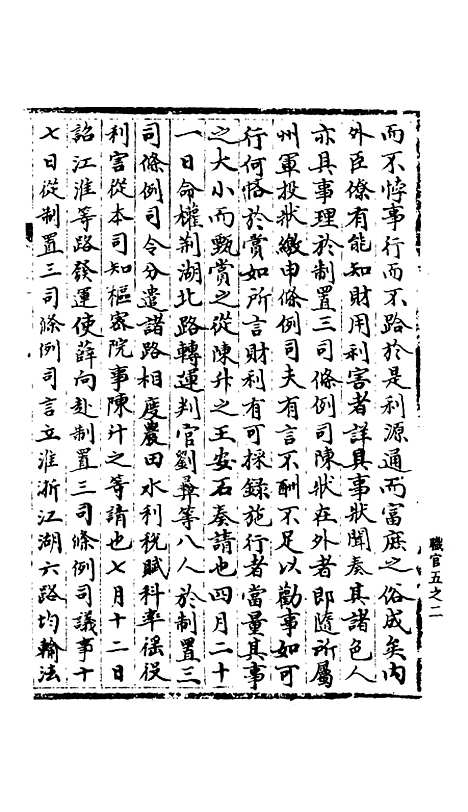 而不悖事行而不路於是利源通而富庶之俗成矣內
外臣僚有能知財用利害者詳具事狀聞奏其諸色人
亦具事理於制置三司條例司陳狀在外者即隨所屬
州軍投狀繳申條例司夫有言不酬不足以勸事如可
行何悋於賞如所言財利有可採錄施行者當量其事
之大小而甄賞之從陳升之王安石奏請也四月二十
一日命權荆湖北路轉運判官劉彝等八人於制置三
司條例司令分遣諸路相度農田水利稅賦科率徭役
利害從本司知樞密院事陳升之等請也七月十二日
詔江淮等路發運使薛向赴制置三司條例司議事十
七日從制置三司條例司言立淮浙江湖六路均輸法
職官五之二